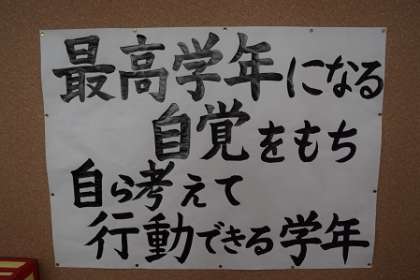 最高学年になる
自覚をもち
自ら考えて
行動できる学年